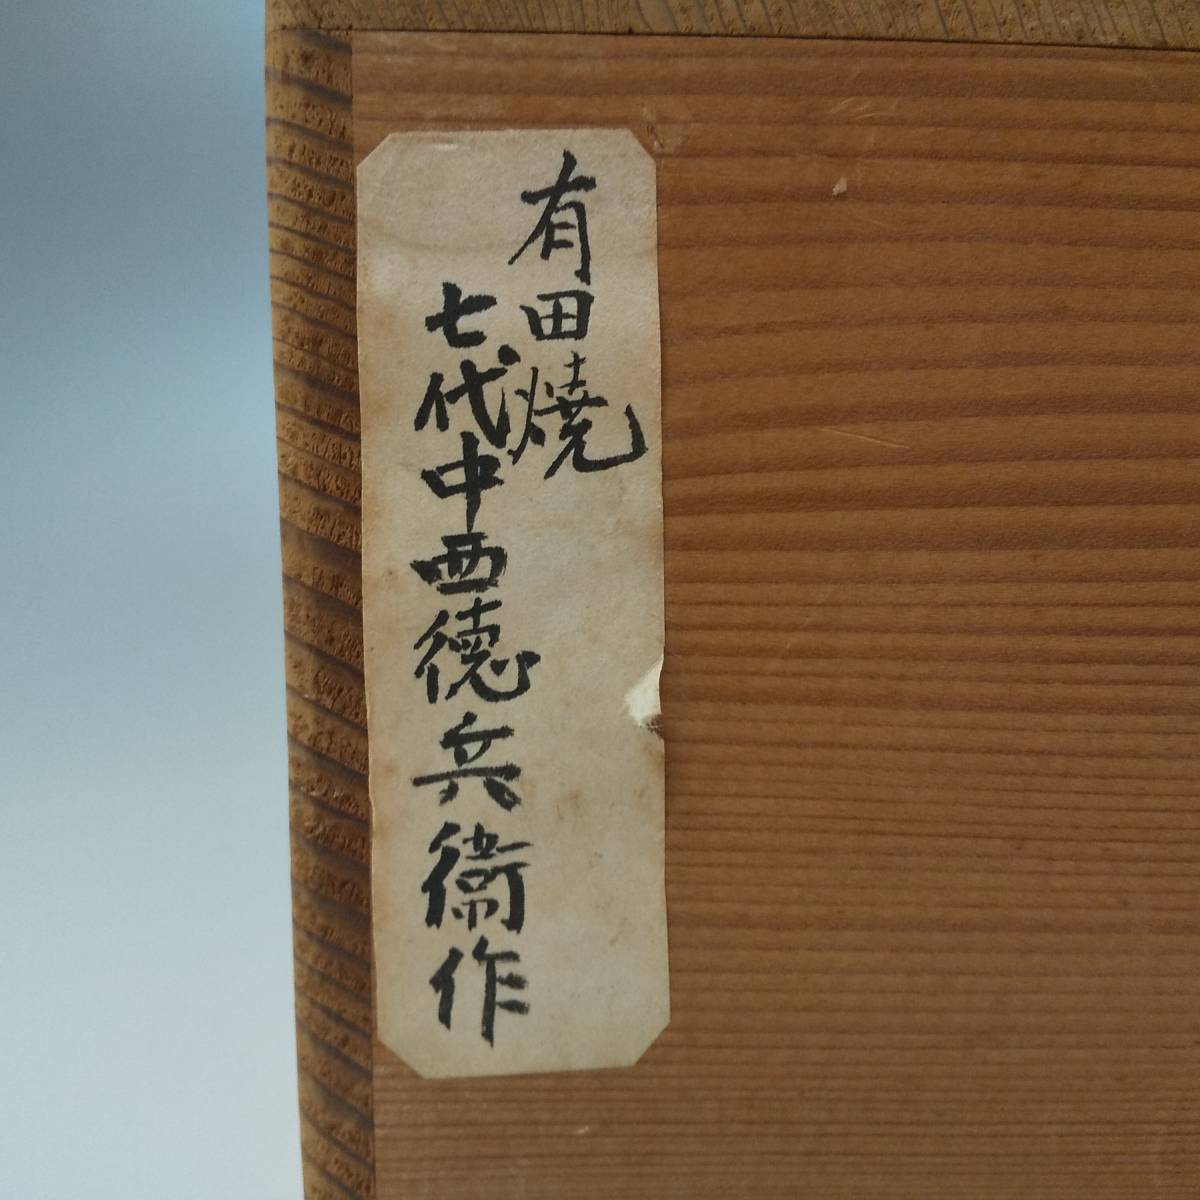 有田燒
七代中西徳兵衞作